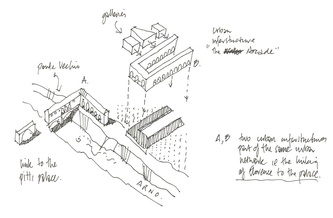 galleries
urban
infrastructure
"the Arcade"
ponte Vecchio
A.
B.
link to the
pitti palace.
ARNO.
A, B two urban infrastructures
part of the same urban
network is the linking
of Florence to the palace.